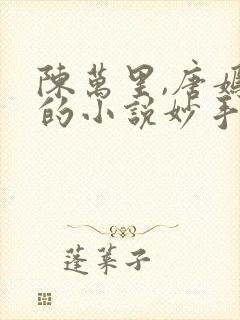 陳萬里,唐嫣
的小說妙手
蓬萊子